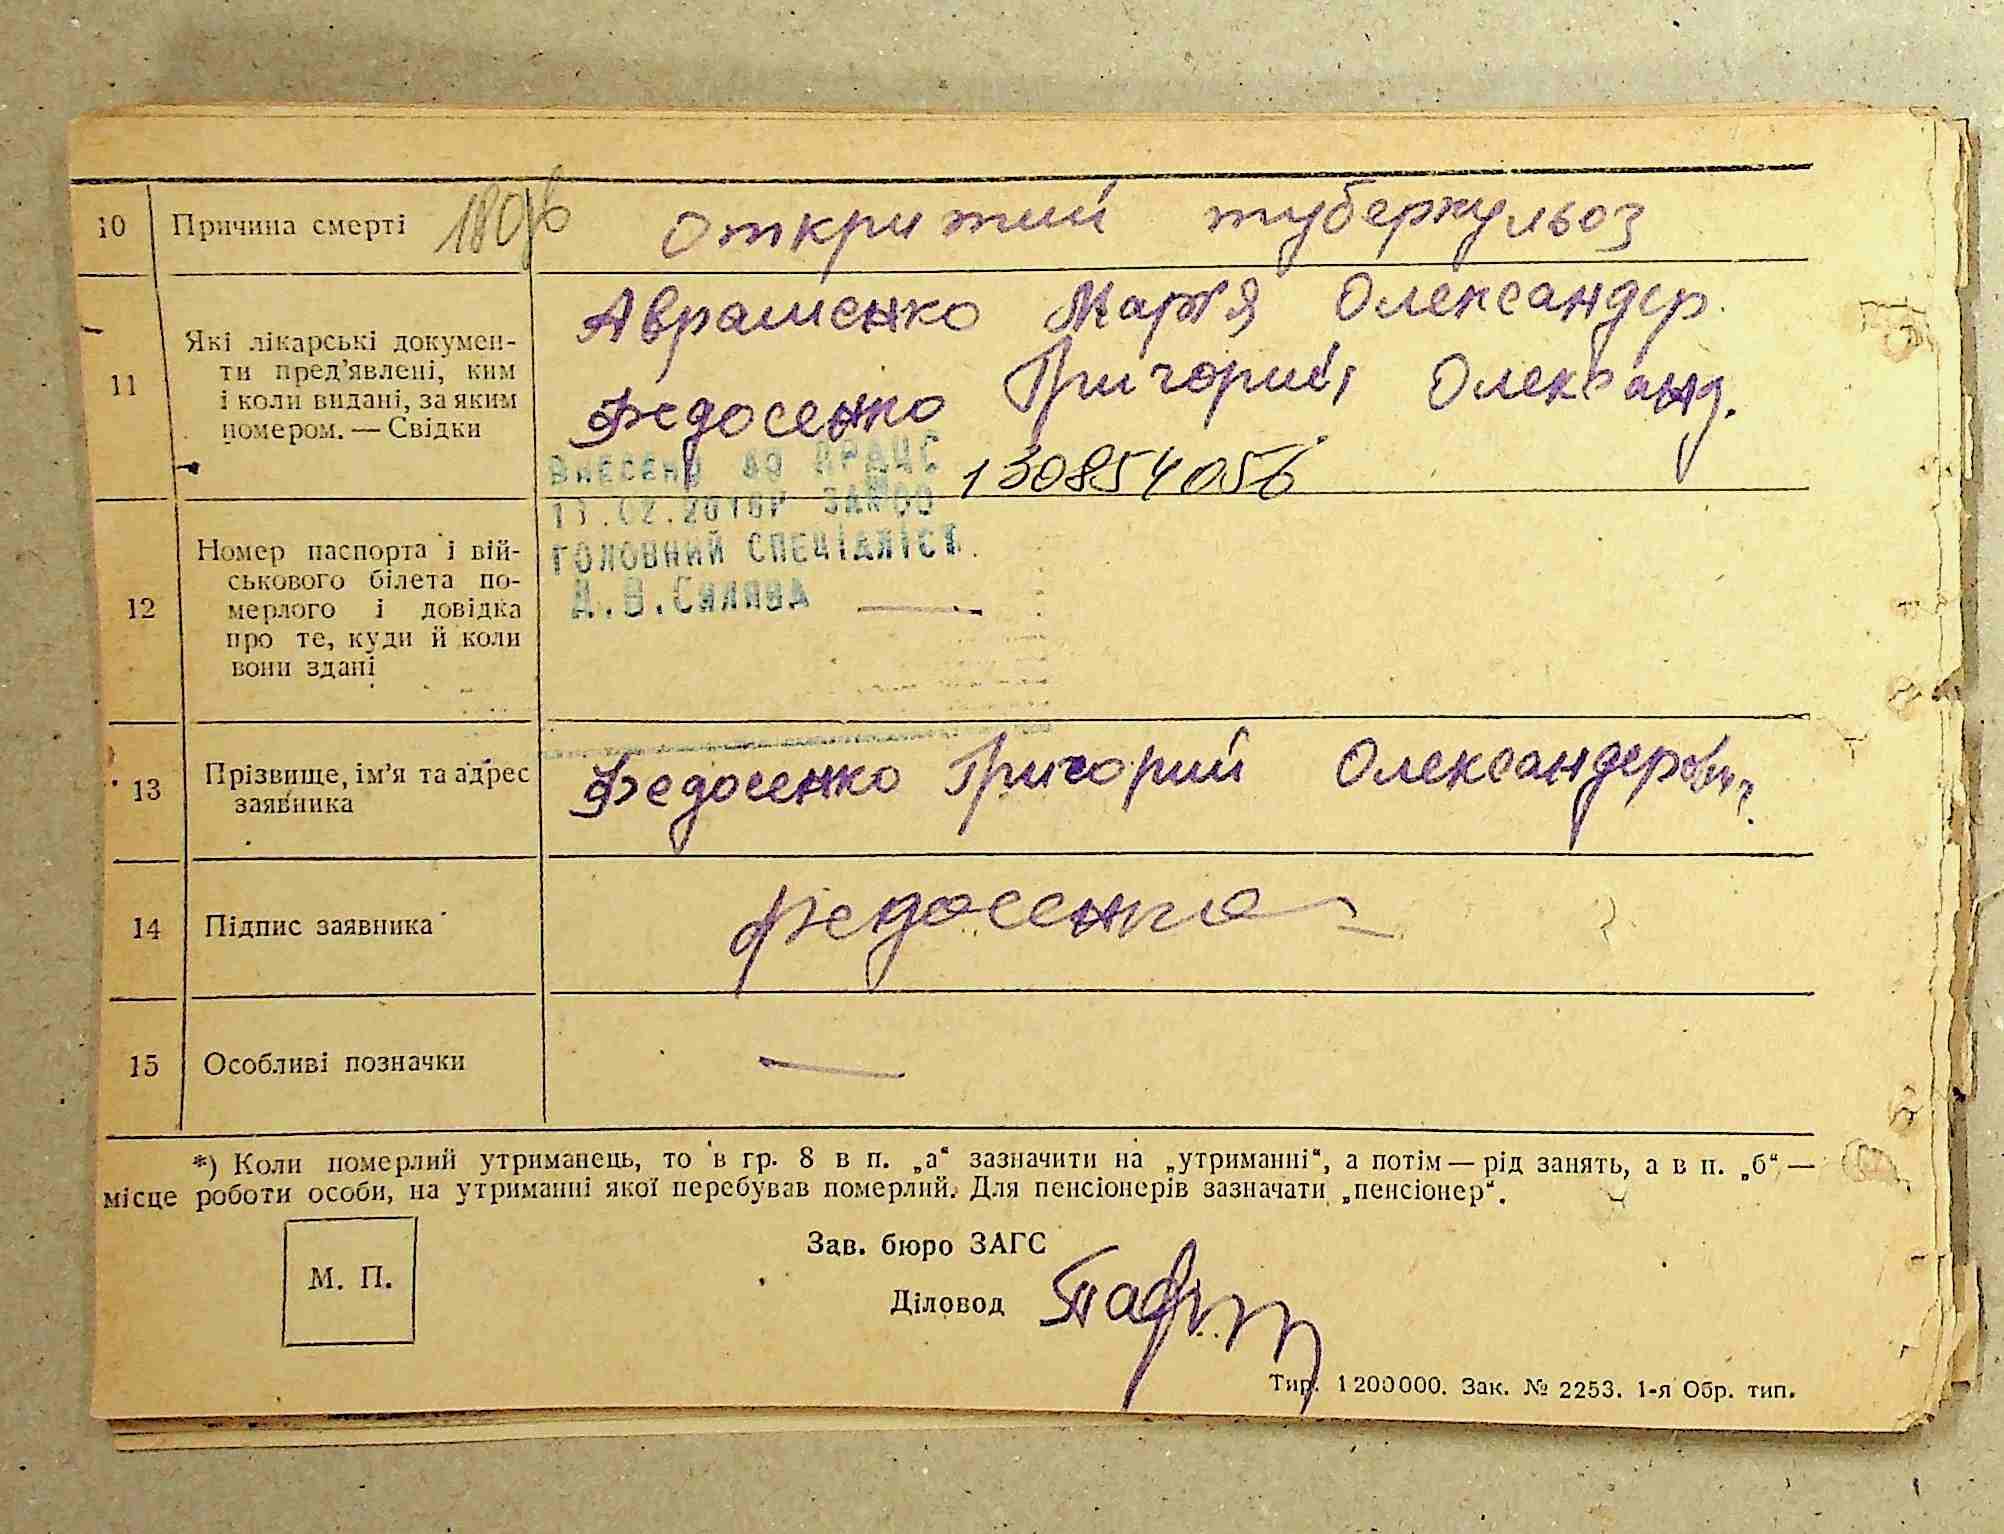 10 Причина смерті Откритий туберкульоз
11 Які лікарські докумен-
ти пред'явлені, ким
і коли видані, за яким
номером. — Свідки
Авраменко Мар'я Олександер.
Федосенко Григорий Олександ.
130854056
ВНЕСЕНО ДО ДРАЦС
ГОЛОВНИЙ СПЕЦІАЛІСТ
12 Номер паспорта і вій-
ськового білета по-
мерлого і довідка
про те, куди й коли
вони здані
—
13 Прізвище, ім'я та адрес
заявника
Федосенко Григорий Олександерович
14 Підпис заявника Федосенко
15 Особливі позначки —
*) Коли померлий утриманець, то в гр. 8 в п. „а“ зазначити на „утриманні“, а потім — рід занять, а в п. „б“ —
місце роботи особи, на утриманні якої перебував померлий. Для пенсіонерів зазначати „пенсіонер“.
Зав. бюро ЗАГС
М. П.
Діловод
Тир. 1200000. Зак. № 2253. 1-я Обр. тип.